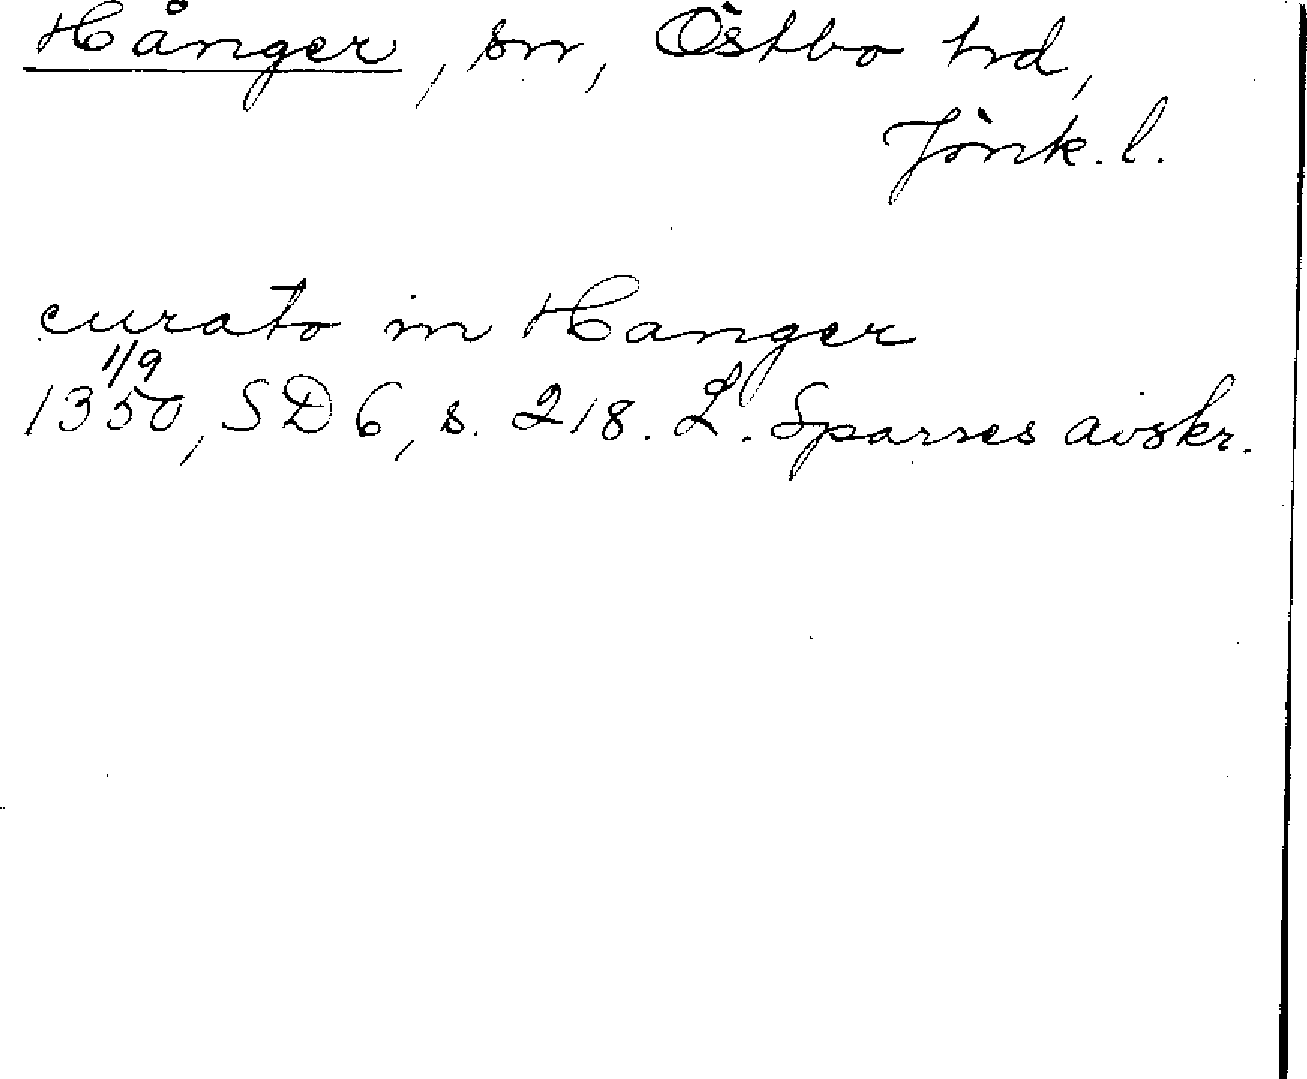 Hånger, sn, Östbo hd,
Jönk. l.
curato in Hanger
1/9
1350, SD 6, s. 218. L. Sparres avskr.